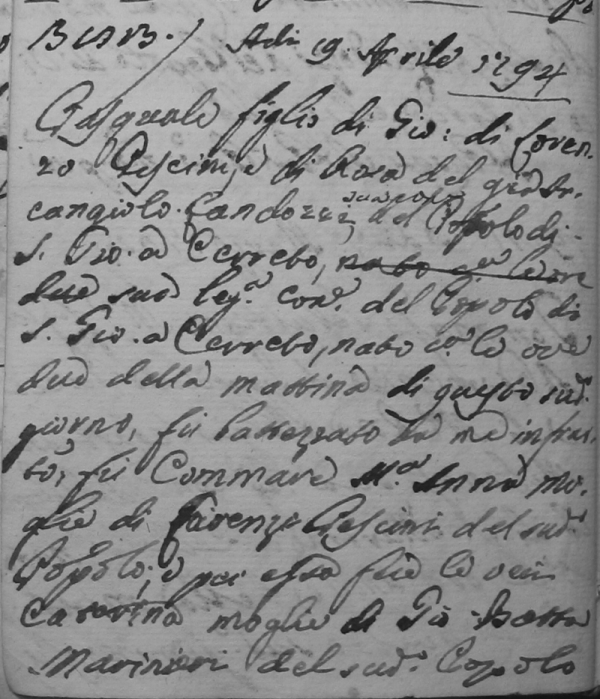 Adi 19 Aprile 1794
Pasquale figlio di Gio: di Loren-
zo Pescini, e di Rosa del già Ar-
cangiolo Landozzi, del Popolo di
S. Gio. a Cerreto, nato
sua leg.a con. del Popolo di
S. Gio. a Cerreto, nato c.a le ore
due della mattina di questo sud.
giorno, fu battezzato da me infras-
to, fu Commare M.a Anna mo-
glie di Lorenzo Pescini del sud.
Popolo, e per essa fece le veci
Caterina moglie di Gio Batta
Marinieri del sud. Popolo